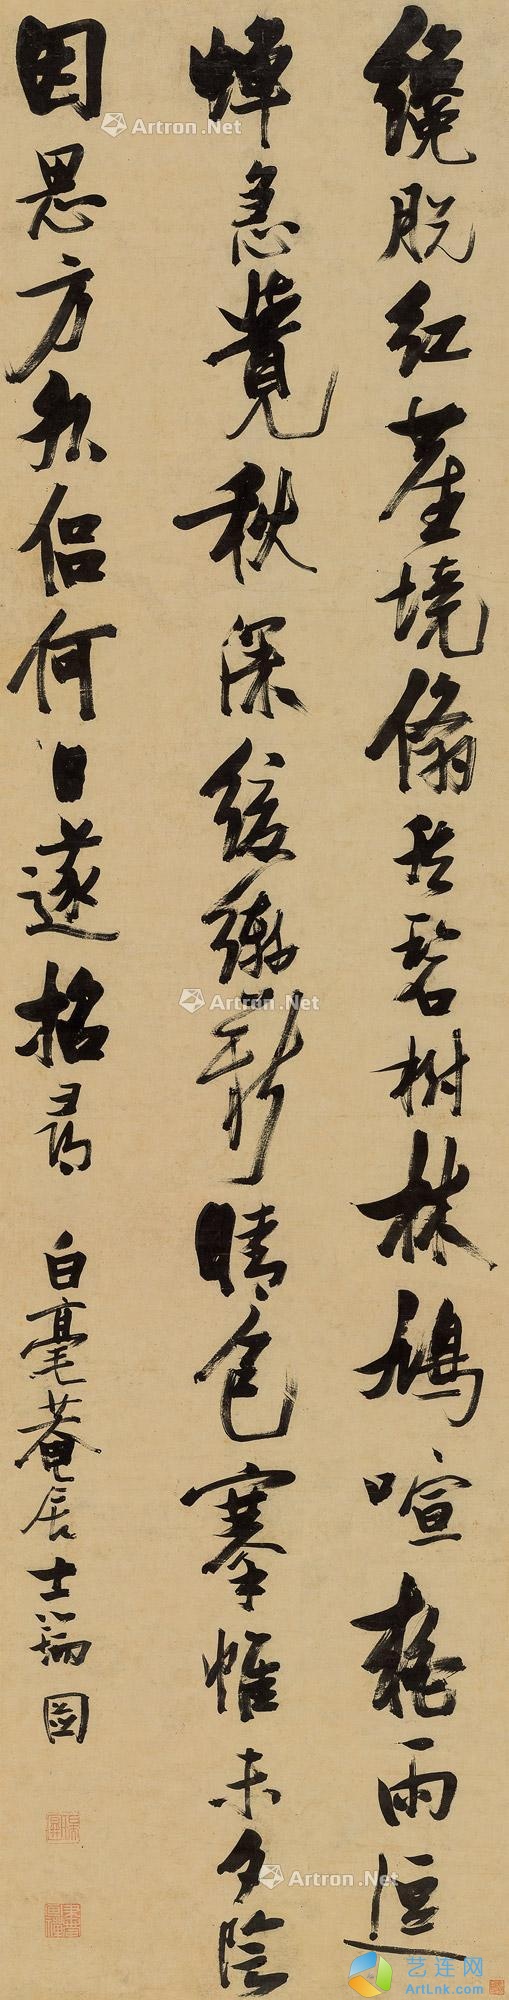 纔脫紅塵境翛然碧樹林鳩喧訛雨逗
蟬急覺秋深緩轡新晴色搴帷未夕陰
因思方外侶何日遂招尋
白毫菴居士瑞圖
Artron.Net
Artron.Net
Artron.Net
Artron.Net
艺连网
ArtLnk.com